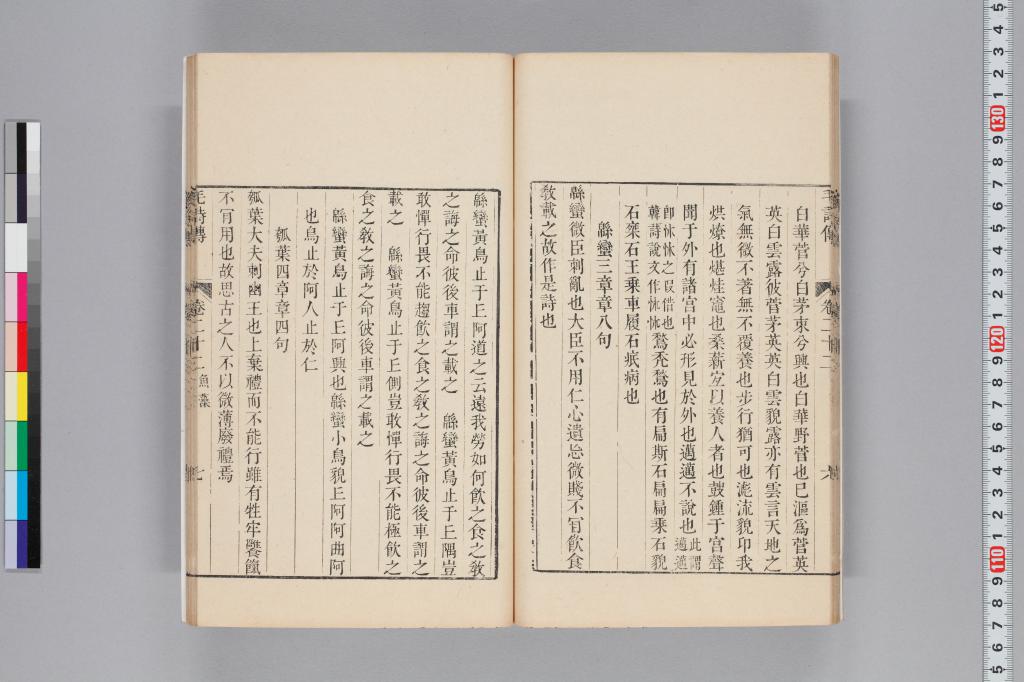 白華菅兮白茅束兮興也白華野菅也已漚爲菅英
英白雲露彼菅茅英英白雲貌露亦有雲言天地之
氣無微不著無不覆養也步行猶可也滮流貌卬我
烘燎也煁烓竈也桑薪宐以養人者也鼓鍾于宮聲
聞于外有諸宮中必形見於外也邁邁不說也此謂邁邁
卽㤄㤄之叚借也韓詩說文作㤄㤄鶖禿鶖也有扁斯石扁扁乘石貌
石椉石王乘車履石疧病也
緜蠻三章章八句
緜蠻微臣刺亂也大臣不用仁心遺忘微賤不肎飮食
敎載之故作是詩也
毛詩傳
卷二十二
六
緜蠻黃鳥止于𠀉阿道之云遠我勞如何飮之食之敎
之誨之命彼後車謂之載之 緜蠻黃鳥止于𠀉隅豈
敢憚行畏不能趨飮之食之敎之誨之命彼後車謂之
載之 緜蠻黃鳥止于𠀉側豈敢憚行畏不能極飮之
食之敎之誨之命彼後車謂之載之
緜蠻黃鳥止于𠀉阿興也緜蠻小鳥貌𠀉阿阿曲阿
也鳥止於阿人止於仁
瓠葉四章章四句
瓠葉大夫刺幽王也上棄禮而不能行雖有牲牢饔餼
不肎用也故思古之人不以微薄廢禮焉
毛詩傳
卷二十二
魚藻
七
5
4
3
2
1
130
9
8
7
6
5
4
3
2
1
120
9
8
7
6
5
4
3
2
1
110
9
8
7
6
5